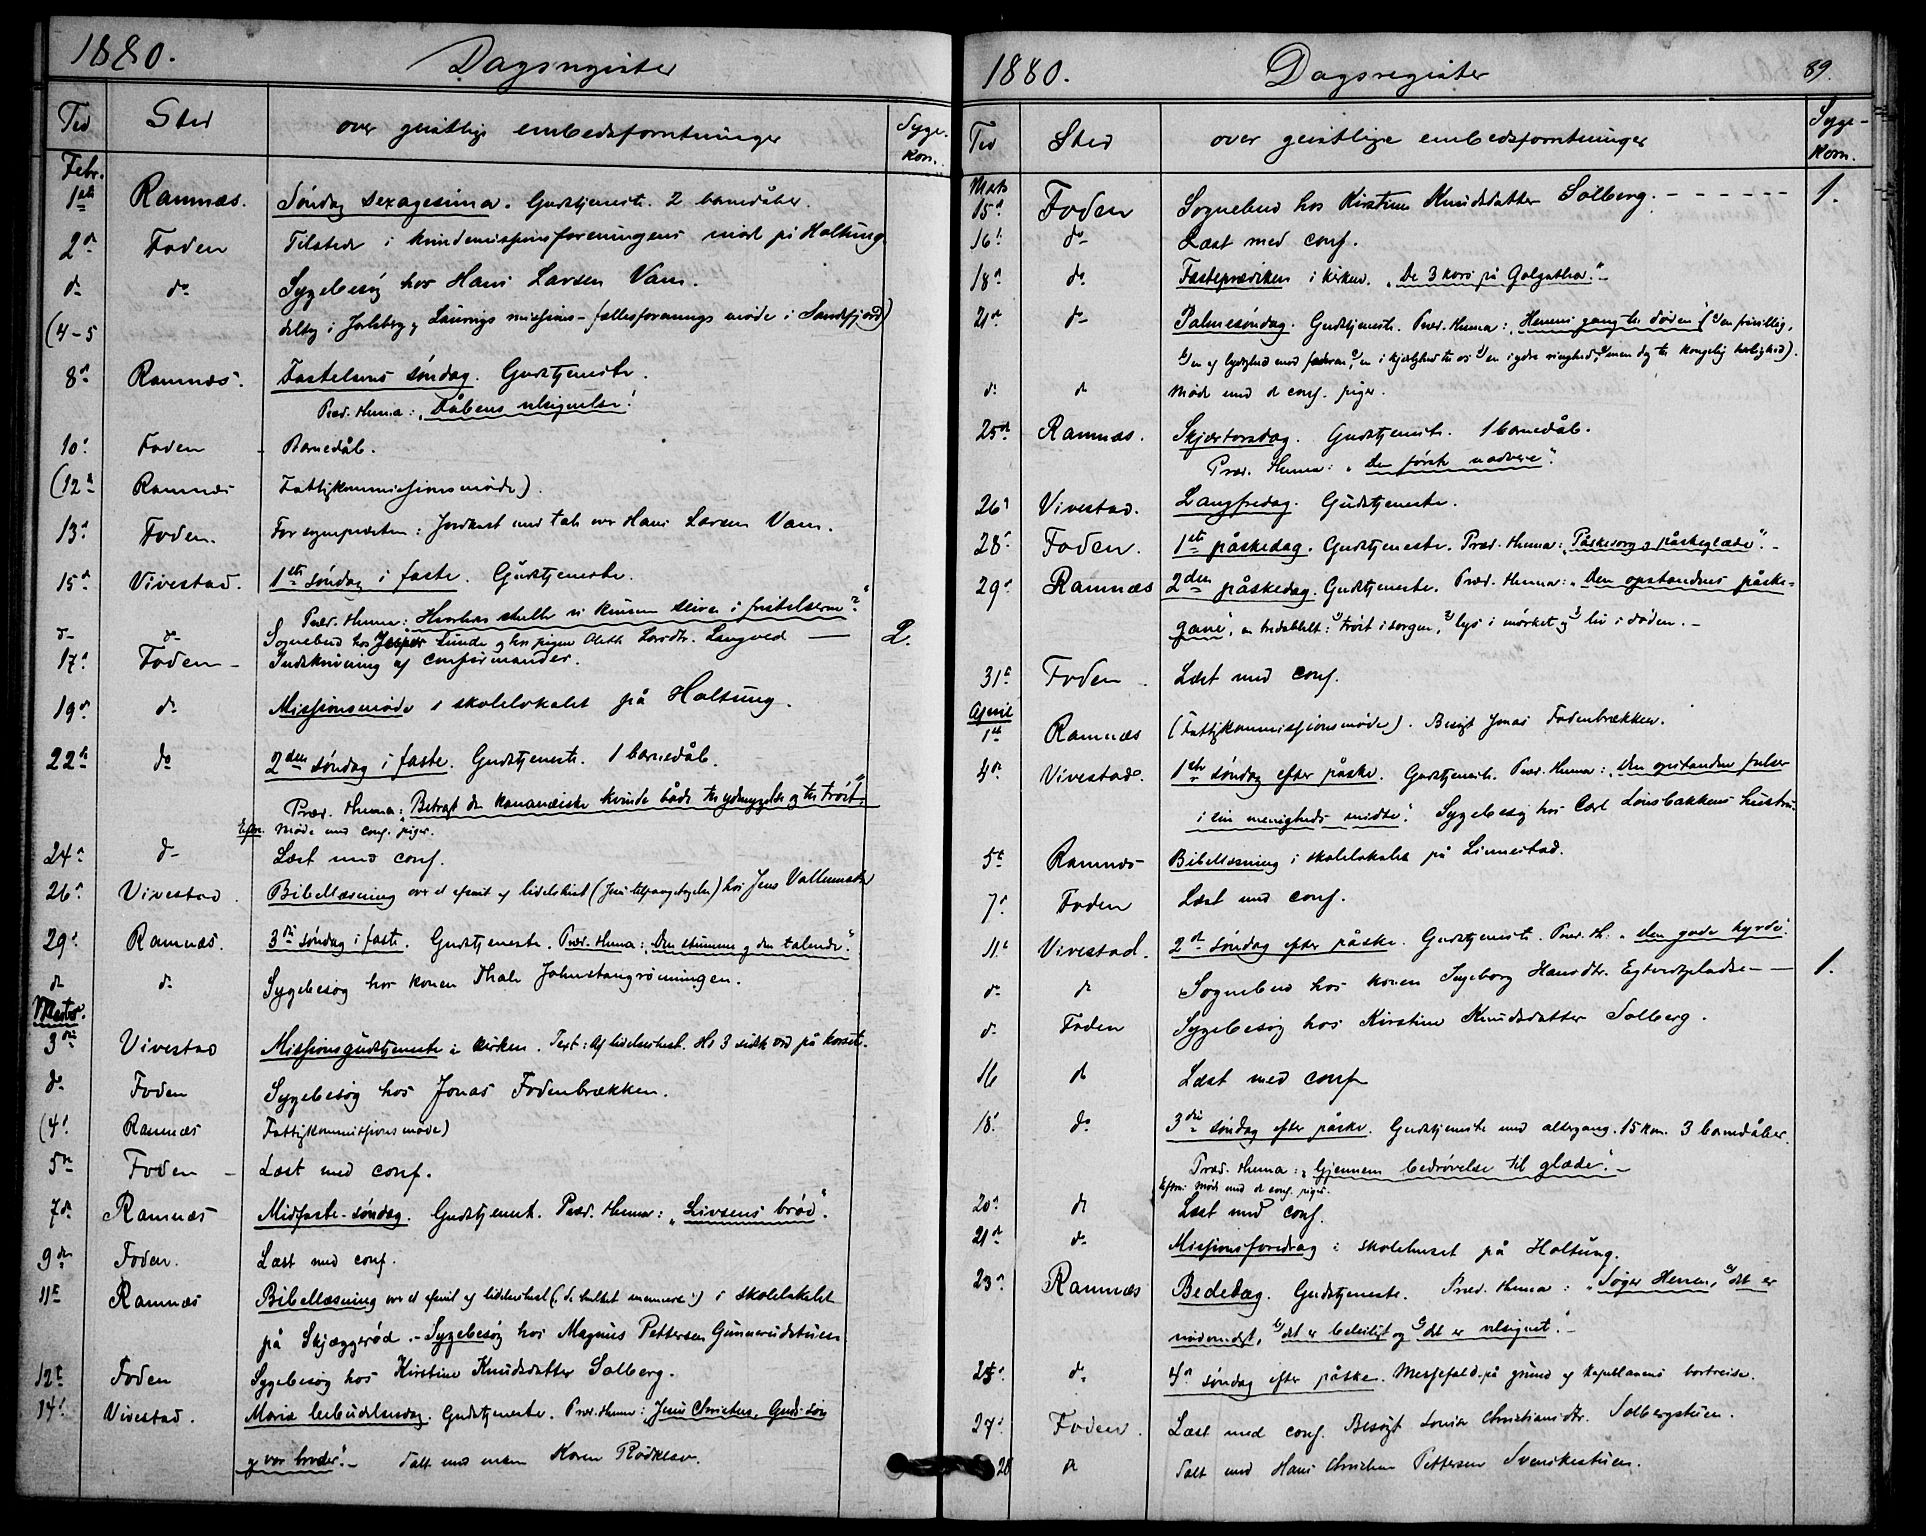 1880.
Dagsregister
Tid
Sted
over geistlige embedsforretninger
Syge-
kom.
Febr.
1ste Ramnæs. Søndag sexagesima. Gudstjeneste. 2 barnedåber.
2d Foden Tilstede i kvindemissionsforeningens mød på Holtung
do do Sygebesøg hos Hans Larsen Vam.
(4-5 deltog i Jarlsberg og Laurvigs missions-fællesforenings møde i Sandefjord)
8d Ramnæs. Fastelavns søndag. Gudstjeneste.
Præd. thema: "Dåbens velsignelse."
10d Foden Barnedåb.
(12d Ramnæs Fattigkommissionsmøde).
13d Foden. For sognepresten: Jordkast med tale over Hans Larsen Vam.
15d Vivestad. 1ste søndag i faste. Gudstjeneste.
Præd. thema: Hvorledes skulle vi kunne seire i fristelserne?
do do Sognebud hos Jesper Lunde og hos pigen Aleth. Larsdtr. Langved — 2.
17d Foden Indskrivning af confirmander.
19d do Missionsmøde i skolelokalet på Holtung.
22d do 2den søndag i faste. Gudstjeneste. 1 barnedåb.
Præd. thema: Betragt den kananæiske kvinde både til ydmygelse og til trøst.
Efterm. Møde med conf. piger.
24d do Læst med conf.
26d Vivestad. Bibellæsning over et afsnit af lidelseshist. (Jesu tilfangetagelse) hos Jens Vallumsrød
29d Ramnæs. 3die søndag i faste. Gudstjeneste. Præd. thema: "Den stumme og den talende."
do do Sygebesøg hos konen Thale Johnstangrønningen.
Marts.
3die Vivestad Missionsgudstjeneste i kirken. Text: Af lidelseshist. De 3 sidste ord på korset.
do Foden Sygebesøg hos Jonas Fodenbrækken.
(4d Ramnæs Fattigkommissionsmøde)
5te Foden Læst med conf.
7de Ramnæs Midfaste-søndag. Gudstjenest. Præd. thema: "Livsens brød".
9de Foden. Læst med conf.
11te Ramnæs Bibellæsning over et afsnit af lidelseshist. i skolelokalet
på Skjæggerød. - Sygebesøg hos Magnus Pettersen Gunnerudstuen
12te Foden Sygebesøg hos Kirstine Knudsdatter Solberg.
14d Vivestad. Mariæ bebudelsesdag. Gudstjeneste. Præd. thema: "Jesus Christus, Guds søn
og vor broder." - Talt med Karen Rødklev.
1880.
Dagsregister
89.
Tid
Sted
over geistlige embedsforretninger
Syge-
kom.
Marts
15d Foden Sognebud hos Kirstine Knudsdatter Solberg. - - - - - - 1.
16d do Læst med conf.
18d do Fasteprædiken i kirken. "De 3 kors på Golgatha."-
21d do Palmesøndag. Gudstjeneste. Præd. thema: Herrens gang til døden (en frivillig,
en af lydighed mod faderen, en i kjærlighed til os en i ydre ringhed, men dog til kongelig herlighed).
do do Møde med de conf. piger.
25d Ramnæs. Skjærtorsdag. Gudstjeneste. 1 barnedåb.
Præd. thema: "den første nadvere".
26d Vivestad. Langfredag. Gudstjeneste.
28d Foden. 1ste påskedag. Gudstjeneste. Præd. thema: "Påskesorg og påskeglæde".-
29d Ramnæs 2den påskedag. Gudstjeneste. Præd. thema: "Den opstandnes påske-
gave, en tredobbelt: 1) trøst i sorgen, 2) lys i mørket og 3) liv i døden. -
31te Foden Læst med conf.
April
1ste Ramnæs (Fattigkommissionsmøde). Besøgt Jonas Fodenbrækken.
4de Vivestad. 1ste søndag efter påske. Gudstjeneste. Præd. thema: "den opstandne frelser
i sin menigheds midte." Sygebesøg hos Carl Lønsbakkens hustru.
5te Ramnæs Bibellæsning i skolelokalet på Linnestad.
7d Foden Læst med conf.
11te Vivestad. 2den søndag efter påske. Gudstjeneste. Præd. th. "den gode hyrde."
do do Sognebud hos konen Ingeborg Hansdtr. — 1.
do Foden Sygebesøg hos Kirstine Knudsdatter Solberg.
16 do Læst med conf
18d do 3die søndag efter påske. Gudstjeneste med altergang. 15 kom. 3 barnedåber.
Præd. thema: "Gjennem bedrøvelse til glæde."-
Efterm: Møde med de conf. piger.
20d do Læst med conf.
21de do Missionsforedrag i skolehuset på Holtung.
23d Ramnæs Bedetag. Gudstjeneste. Præd. thema: "Søger Herren, a) det er
nødvendigt, b) det er beleiligt og c) det er velsignet."-
25d do 4de søndag efter påske. Messefald på grund af kapellanens bortreise.
27d Foden. Læst med conf. Besøgt Lovise Christiansdtr. Solbergstuen.
28 do Talt med Hans Christian Pettersen Svenskestuen.